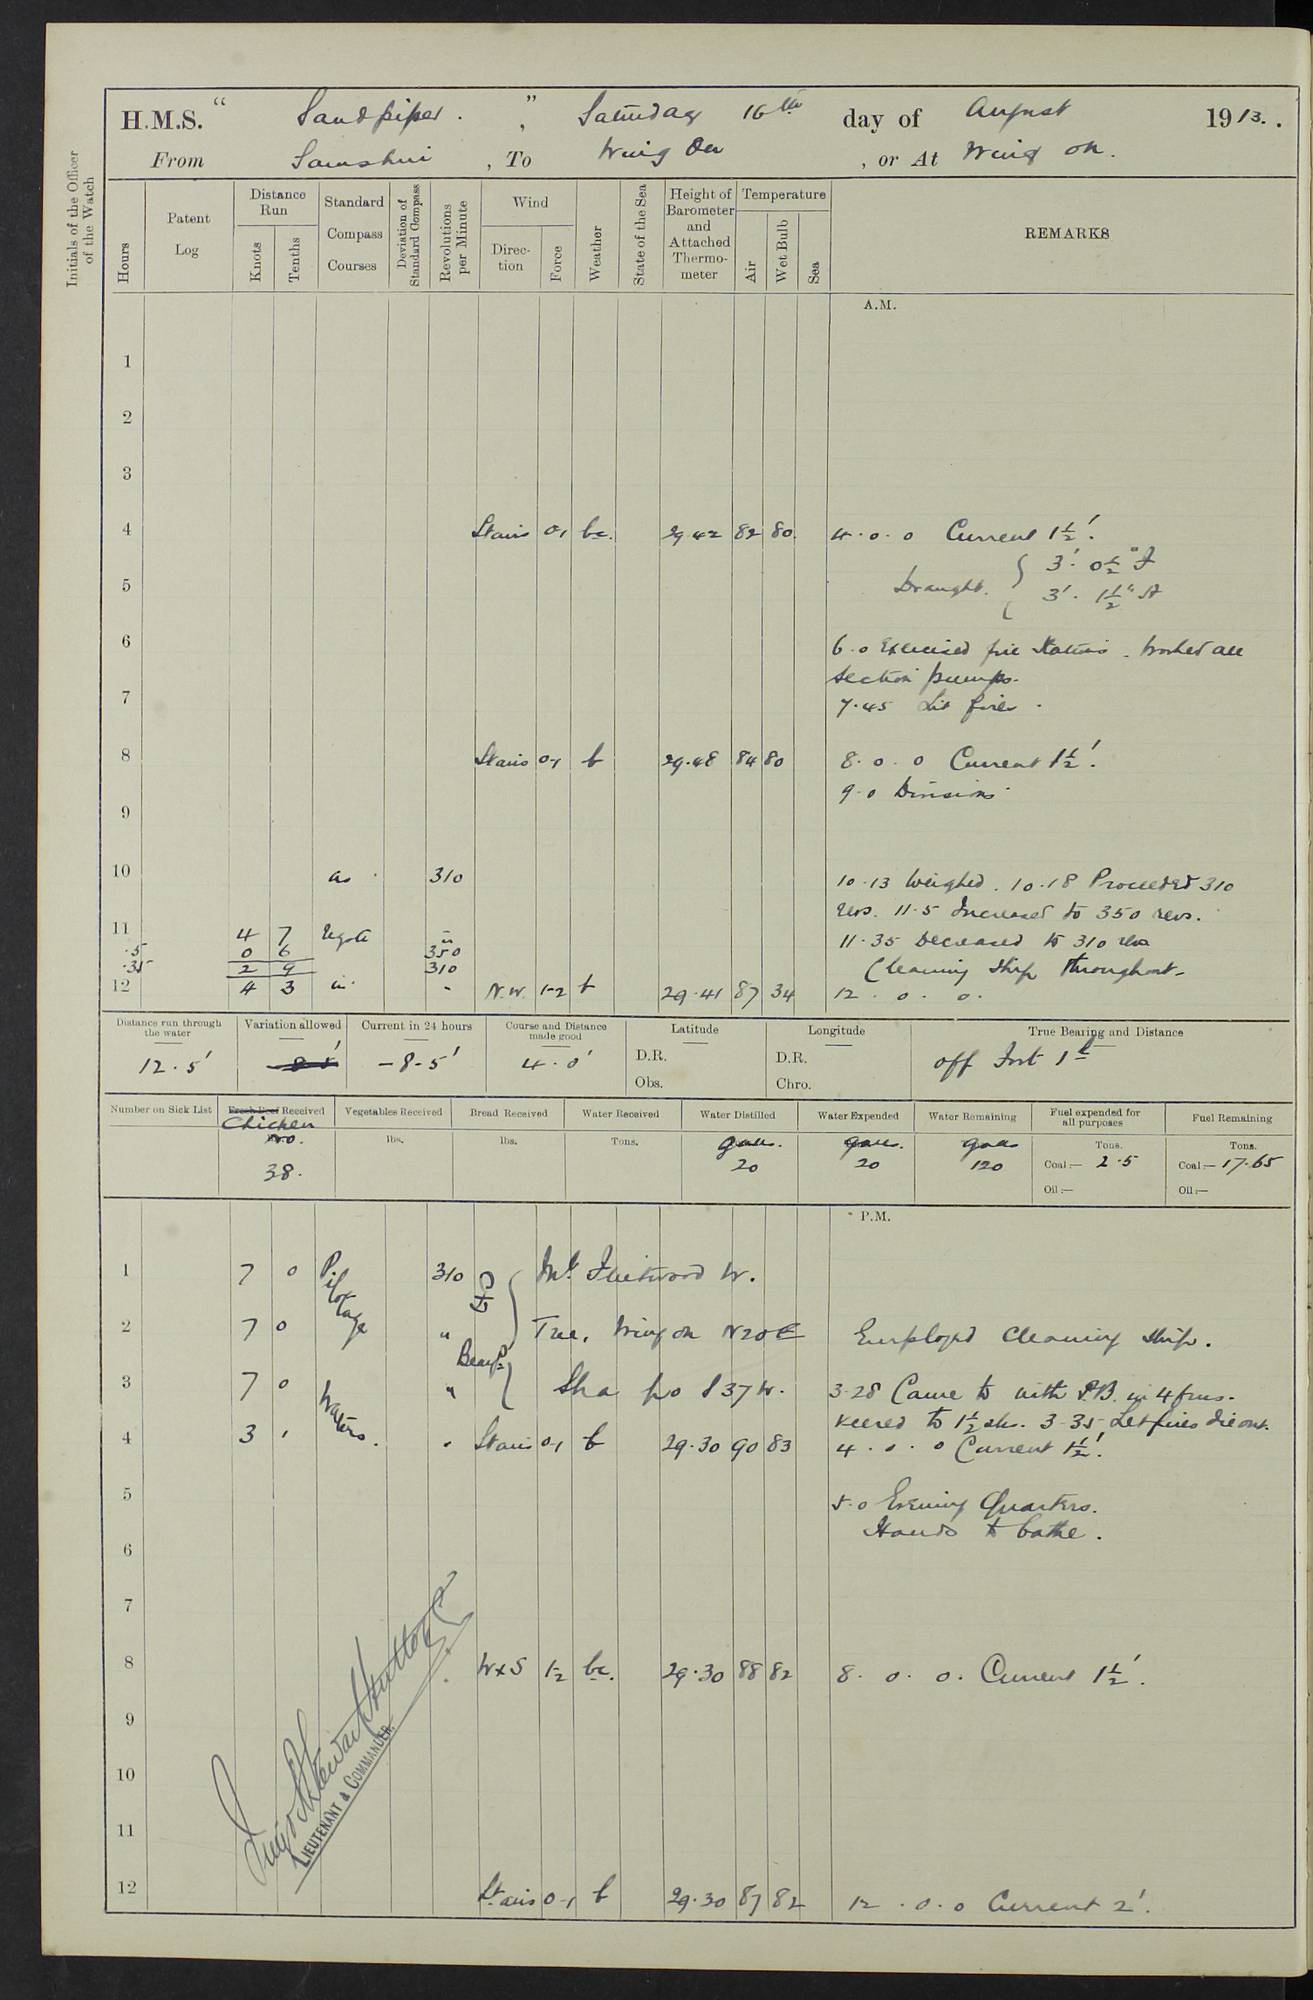 H.M.S. "Sandpiper.", Saturday 16th day of August 1913.
From Samshui, To Wing On, or At Wing On.
Initials of the Officer of the Watch
Hours
Patent Log
Distance Run
Knots
Tenths
Standard Compass Courses
Deviation of Standard Compass
Revolutions per Minute
Wind
Direction
Force
Weather
State of the Sea
Height of Barometer and Attached Thermometer
Temperature
Air
Wet Bulb
Sea
REMARKS
A.M.
1
2
3
4 Stairs 0-1 bc. 29.42 82 80. 4.0.0 Current 1½'.
Draught. { 3'. 0½" F
5 3'. 1½" A
6 6.0 Exercised fire Stations. Worked all
section pumps.
7 7.45 Lit fires.
8 Stairs 0-1 b 29.48 84 80 8.0.0 Current 1½'.
9.0 Divisions.
9
10 as 310 10.13 Weighed. 10.18 Proceeded 310
revs. 11.5 Increased to 350 revs.
11 4 7 Regte " 11.35 Decreased to 310 revs
.5 0 6 350
.35 2 9 310 Cleaning Ship throughout.
12 4 3 in. " N.W. 1-2 b 29.41 87 34 12.0.0.
Distance run through the water
12.5'
Variation allowed
Current in 24 hours
-8.5'
Course and Distance made good
4.0'
Latitude
D.R.
Obs.
Longitude
D.R.
Chro.
True Bearing and Distance
off Fort 1
Number on Sick List
Fresh Beef Received
Chicken
No.
38.
Vegetables Received
lbs.
Bread Received
lbs.
Water Received
Tons.
Water Distilled
galls.
20
Water Expended
galls.
20
Water Remaining
galls
120
Fuel expended for all purposes
Tons.
Coal:— 2.5
Oil:—
Fuel Remaining
Tons.
Coal:— 17.65
Oil:—
P.M.
1 7 0 Pilotage 310 Mt Fleetwood W.
2 7 0 " Tree, Wing on N20E Employed cleaning ship.
Bear's
3 7 0 Waters. " Sha po S37W. 3.28 Came to with P.B. in 4 fms.
veered to 1½ shs. 3.35 Let fires die out.
4 3 1 " Stairs 0-1 b 29.30 90 83 4.0.0 Current 1½'.
5 5.0 Evening Quarters.
Hands to bathe.
6
7
8 WxS 1-2 bc. 29.30 88 82 8.0.0. Current 1½'.
9
10
11
LIEUTENANT & COMMANDER.
12 Stairs 0-1 b 29.30 87 82 12.0.0 Current 2'.